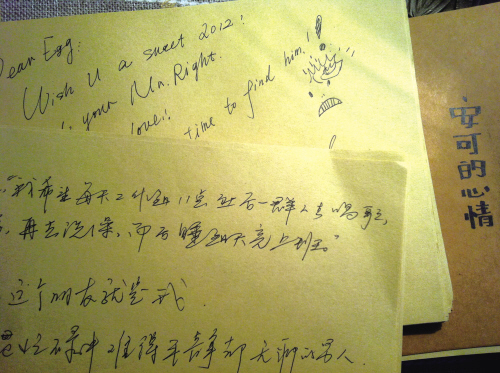 Dear Egg:
Wish U a sweet 2012!
your Mr. Right.
love!! time to find him!
安可的心情
"我希望每天工作到11点 然后一群人去唱歌,
再去洗澡、而后睡到天亮上班。"
这个朋友就是我.
忙碌中难得
男人.